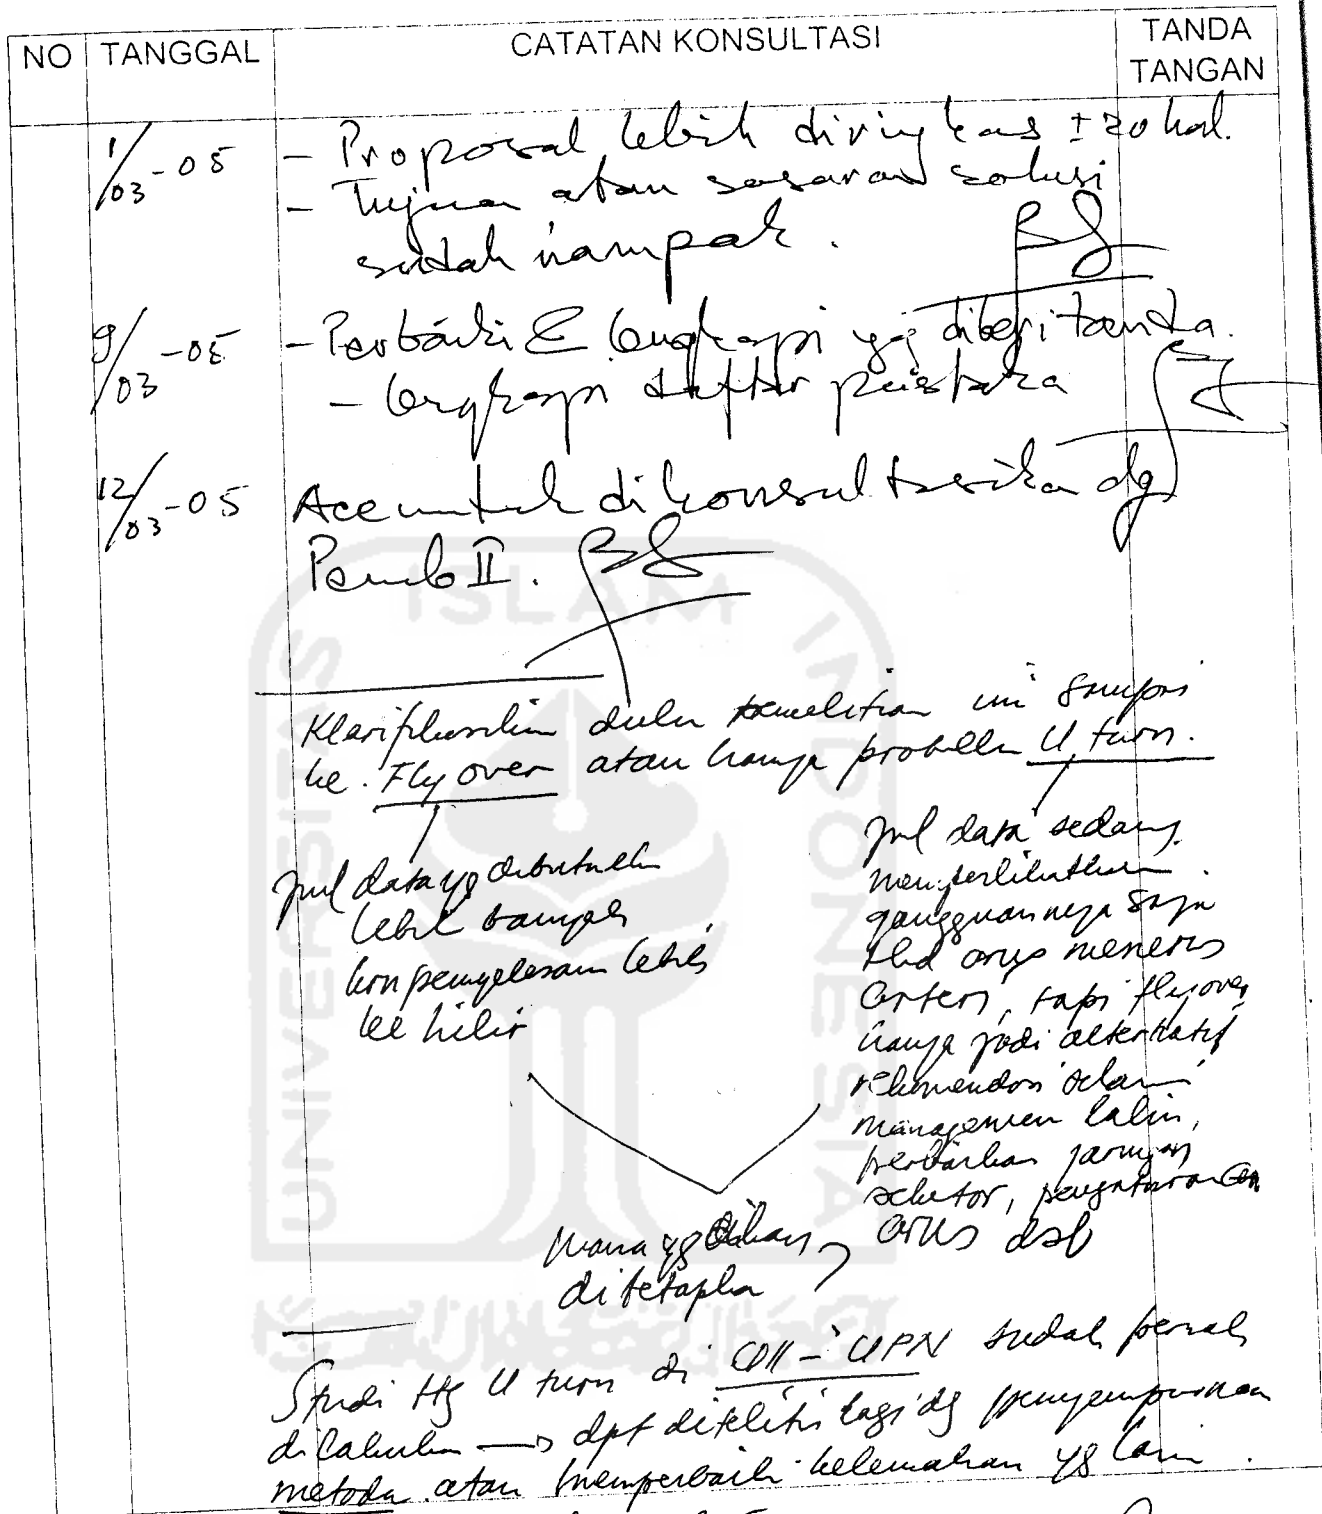 NO TANGGAL CATATAN KONSULTASI TANDA TANGAN
1/03-05 - Proposal lebih diringkas ± 20 hal.
- Tujuan atau sasaran solusi
sudah nampak.
9/03-05 - Perbaiki & lengkapi yg diberi tanda.
- lengkapi daftar pustaka
12/03-05 Acc untuk dikonsultasikan dg
Pemb II.
ISLAM
UNIVERSITAS
INDONESIA
Klarifikasikan dulu penelitian ini sampai
ke. Fly over atau hanya problem U turn.
jml data yg dibutuhkan
lebih banyak
krn penyelesaian lebih
ke hilir
jml data sedang.
memperlihatkan
gangguannya saja
thd arus menerus
arteri, tapi flyover
hanya jadi alternatif
rekomendasi selain
manajemen lalin,
perbaikan jaringan
sekitar, pengaturan
arus dsb
mana yg akan
ditetapkan
Studi ttg U turn di - UPN sudah pernah
dilakukan → dpt diteliti lagi dg penyempurnaan
metoda atau memperbaiki kelemahan yg lain.